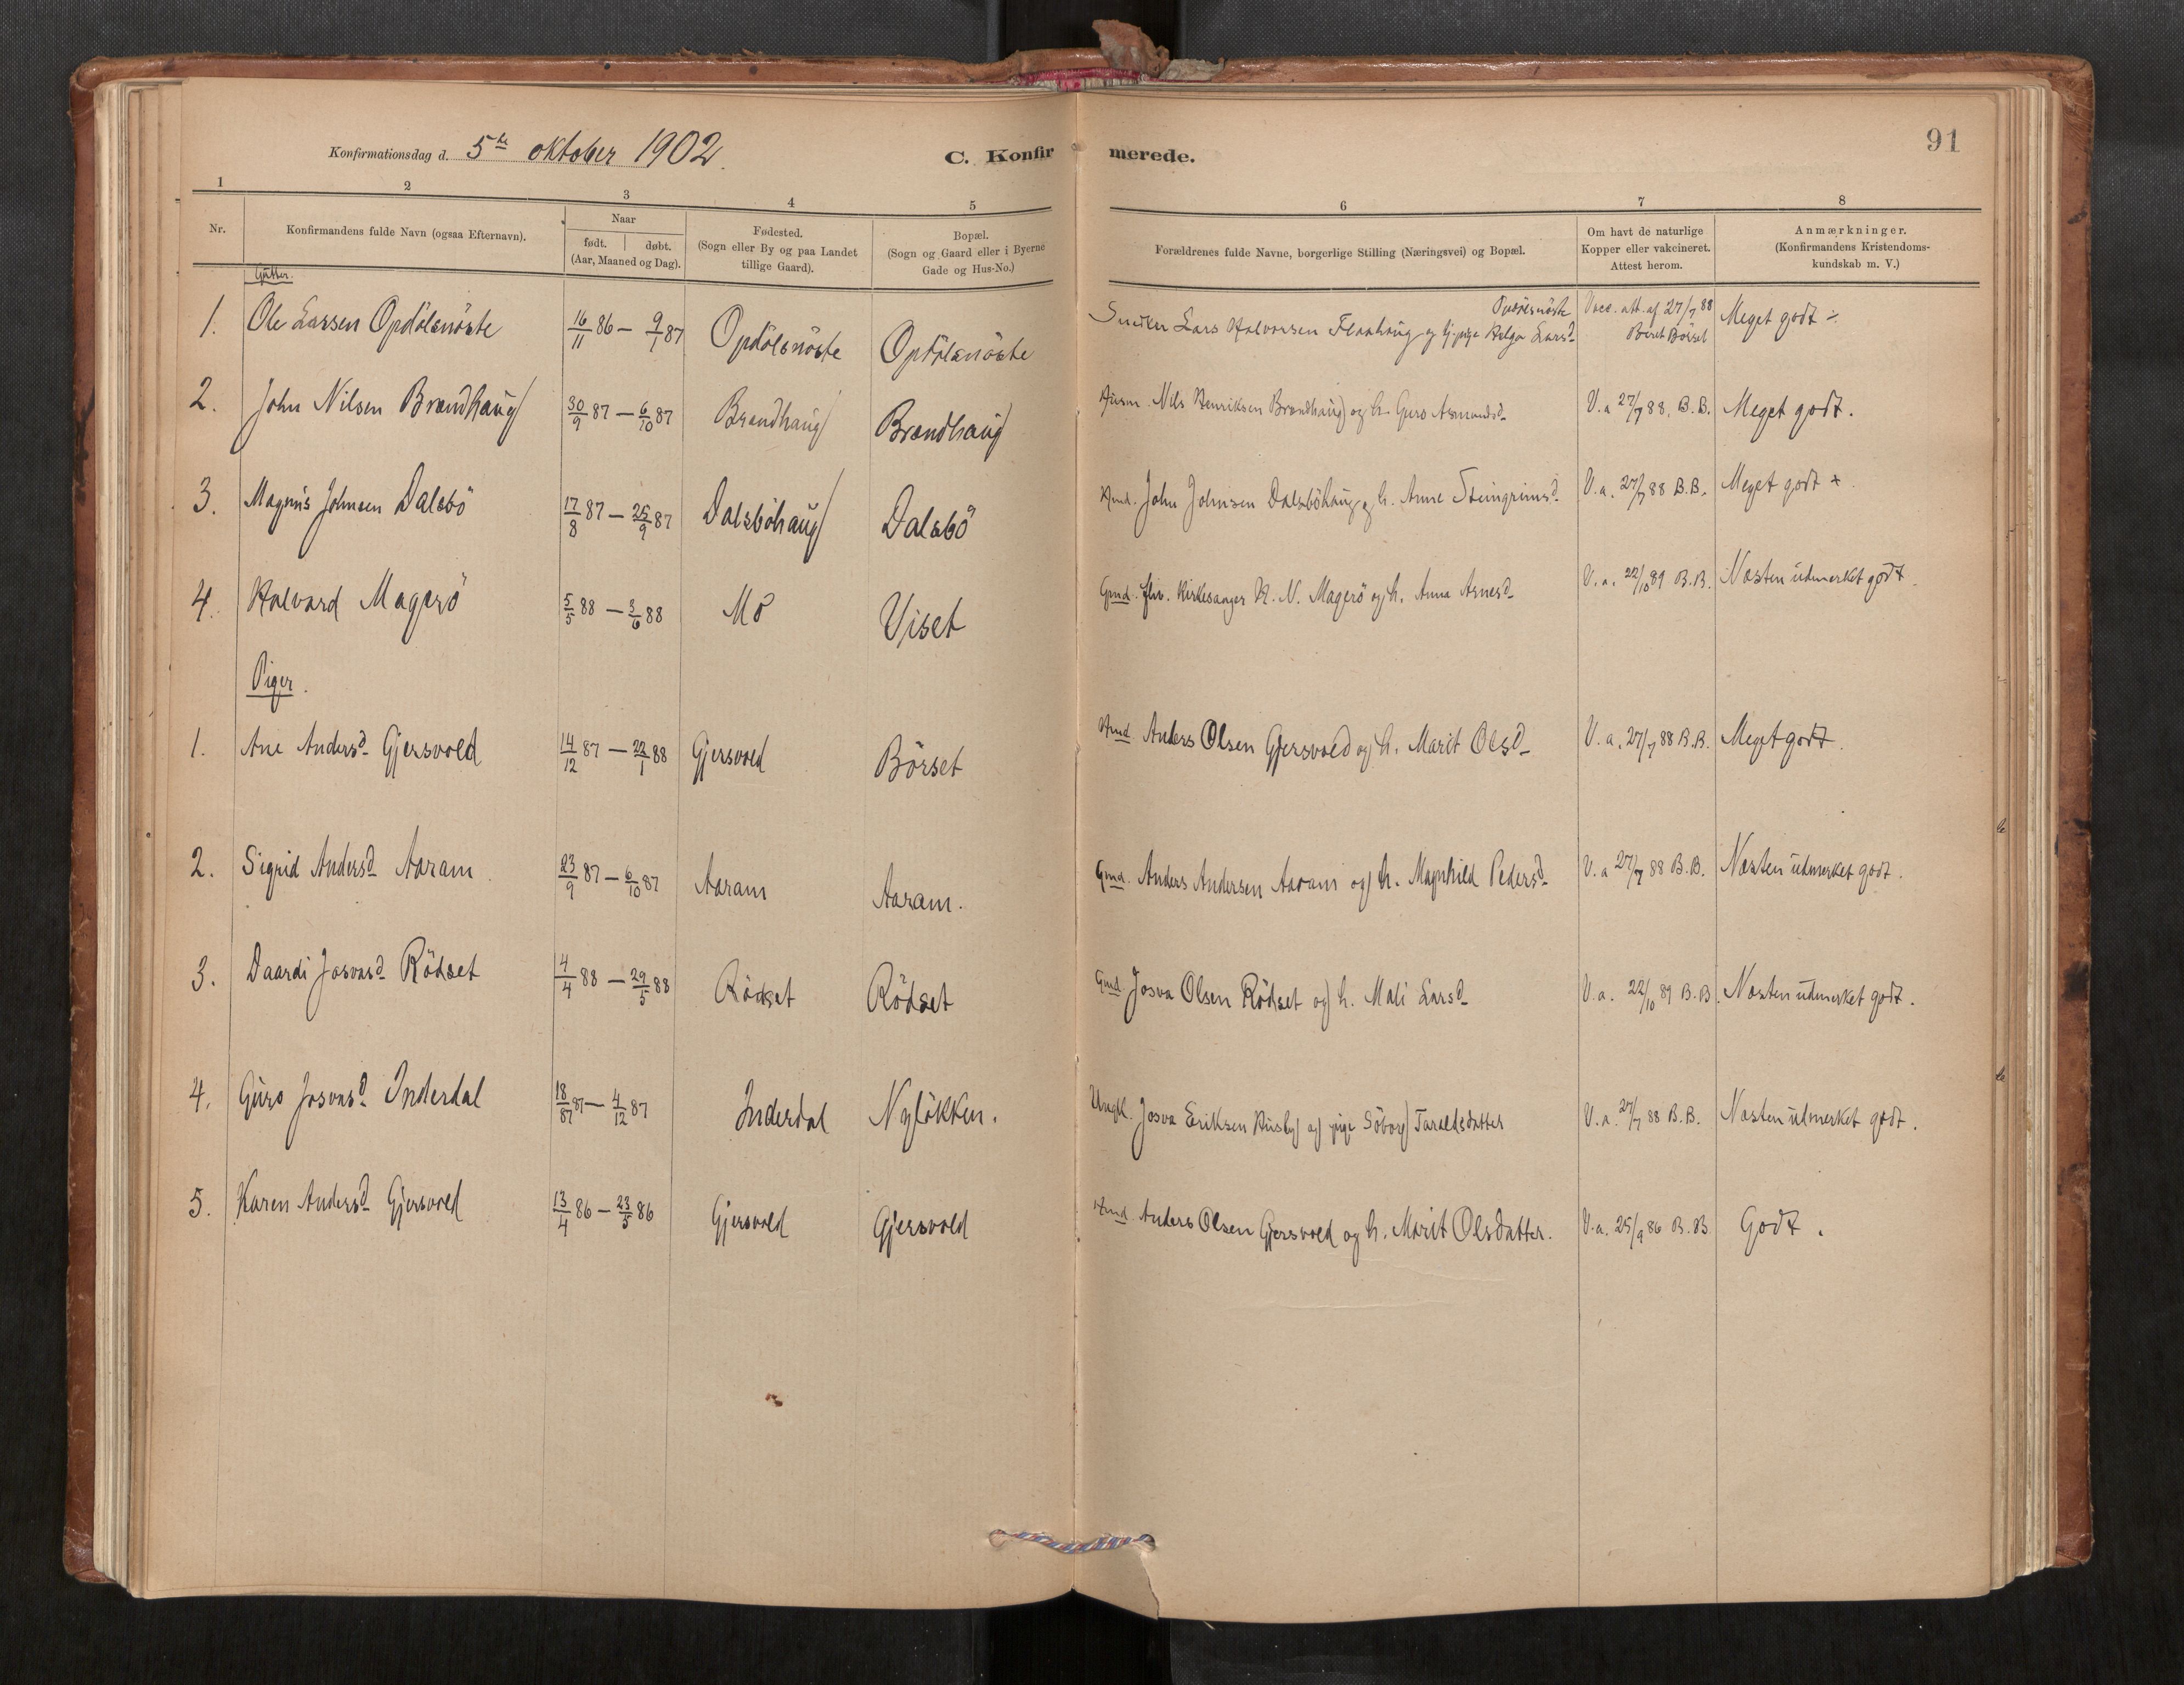 91
Konfirmationsdag d. 5te oktober 1902.
C. Konfirmerede.
1 2 3 4 5 6 7 8
Nr.
Konfirmandens fulde Navn (ogsaa Efternavn).
Naar
født. | døbt.
(Aar, Maaned og Dag).
Fødested.
(Sogn eller By og paa Landet
tillige Gaard).
Bopæl.
(Sogn og Gaard eller i Byerne
Gade og Hus-No.)
Forældrenes fulde Navne, borgerlige Stilling (Næringsvei) og Bopæl.
Om havt de naturlige
Kopper eller vakcineret.
Attest herom.
Anmærkninger.
(Konfirmandens Kristendoms-
kundskab m. V.)
Gutter.
1. Ole Larsen Opdölsnöste 16/11 86 — 9/1 87 Opdölsnöste Opdölsnöste Lars Halvorsen Flaahaug og Helga Larsd. Vacc. att. af 27/7 88 Berit Börset Meget godt ÷.
2. John Nilsen Brandhaug 30/9 87 — 6/10 87 Brandhaug Brandhaug Husm. Nils Henriksen Brandhaug og h. Guro Asmundsd. V. a 27/7 88. B.B. Meget godt.
3. Magnus Johnsen Dalsbö 17/8 87 — 25/9 87 Dalsböhaug Dalsbö Hmd. John Johnsen Dalsböhaug og h. Anne Steingrimsd. V. a. 27/7 88 B.B. Meget godt +.
4. Halvard Magerö 5/5 88 — 3/6 88 Mo Viset Gmd. fhv. Kirkesanger H. N. Magerö og h. Anna Arnesd. V. a. 22/10 89 B.B. Næsten udmerket godt.
Piger.
1. Ane Andersd. Gjersvold 14/12 87 — 22/1 88 Gjersvold Börset Hmd Anders Olsen Gjersvold og h. Marit Olsd. V. a. 27/7 88 B.B. Meget godt.
2. Sigrid Andersd. Aaram 23/9 87 — 6/10 87 Aaram Aaram. Gmd. Anders Andersen Aaram og h. Magnhild Pedersd. V. a 27/7 88 B.B. Næsten udmerket godt.
3. Daardi Josvasd. Rödset 4/4 88 — 29/5 88 Rödset Rödset Gmd. Josva Olsen Rödset og h. Mali Larsd. V. a. 22/10 89 B.B. Næsten udmerket godt.
4. Guro Josvasd. Inderdal 18/87 87 — 4/12 87 Inderdal Nylökken. Ungk. Josva Eriksen Husby og pige Söborg Taraldsdatter V. a. 27/7 88 B.B. Næsten udmerket godt.
5. Karen Andersd. Gjersvold 13/4 86 — 23/5 86 Gjersvold Gjersvold Hmd Anders Olsen Gjersvold og h. Marit Olsdatter. V. a. 25/9 86 B.B. Godt.